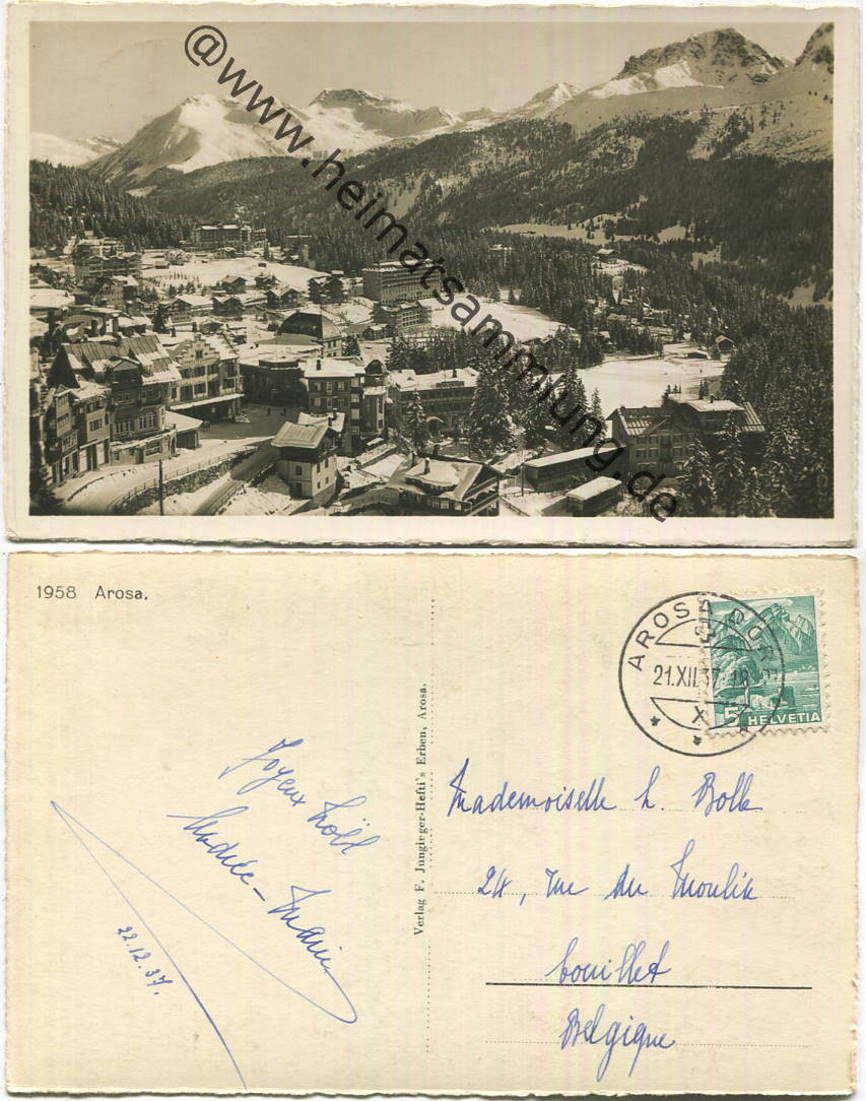 @www.heimatsammlung.de
1958 Arosa.
AROSA DORF
21.XII.37.18
X
5 HELVETIA
Verlag F. Junginger-Hefti's Erben, Arosa.
Joyeux Noël
Andrée-Marie
22.12.37.
Mademoiselle L. Bolle
24, rue du Moulin
Couillet
Belgique